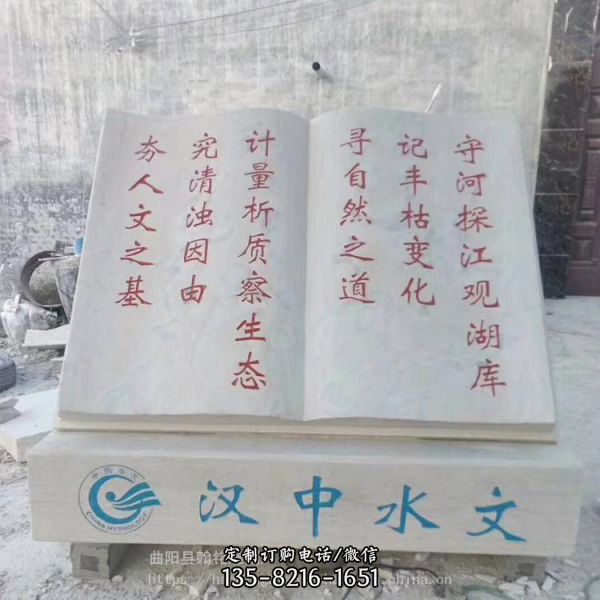 守河探江观湖库
记丰枯变化
寻自然之道
计量析质察生态
究清浊因由
夯人文之基
中国水文
CHINA HYDROLOGY
汉中水文
曲阳县翰铭
定制订购电话/微信
135-8216-1651